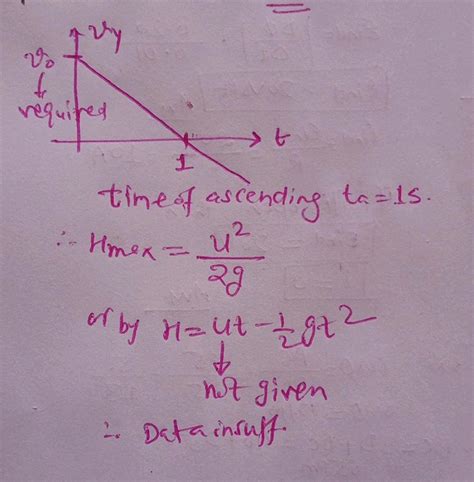 vy
v₀
required
t
1
time of ascending ta = 1s.
∴ Hmax = u²/2g
or by H = ut - ½gt²
not given
∴ Data insuff.